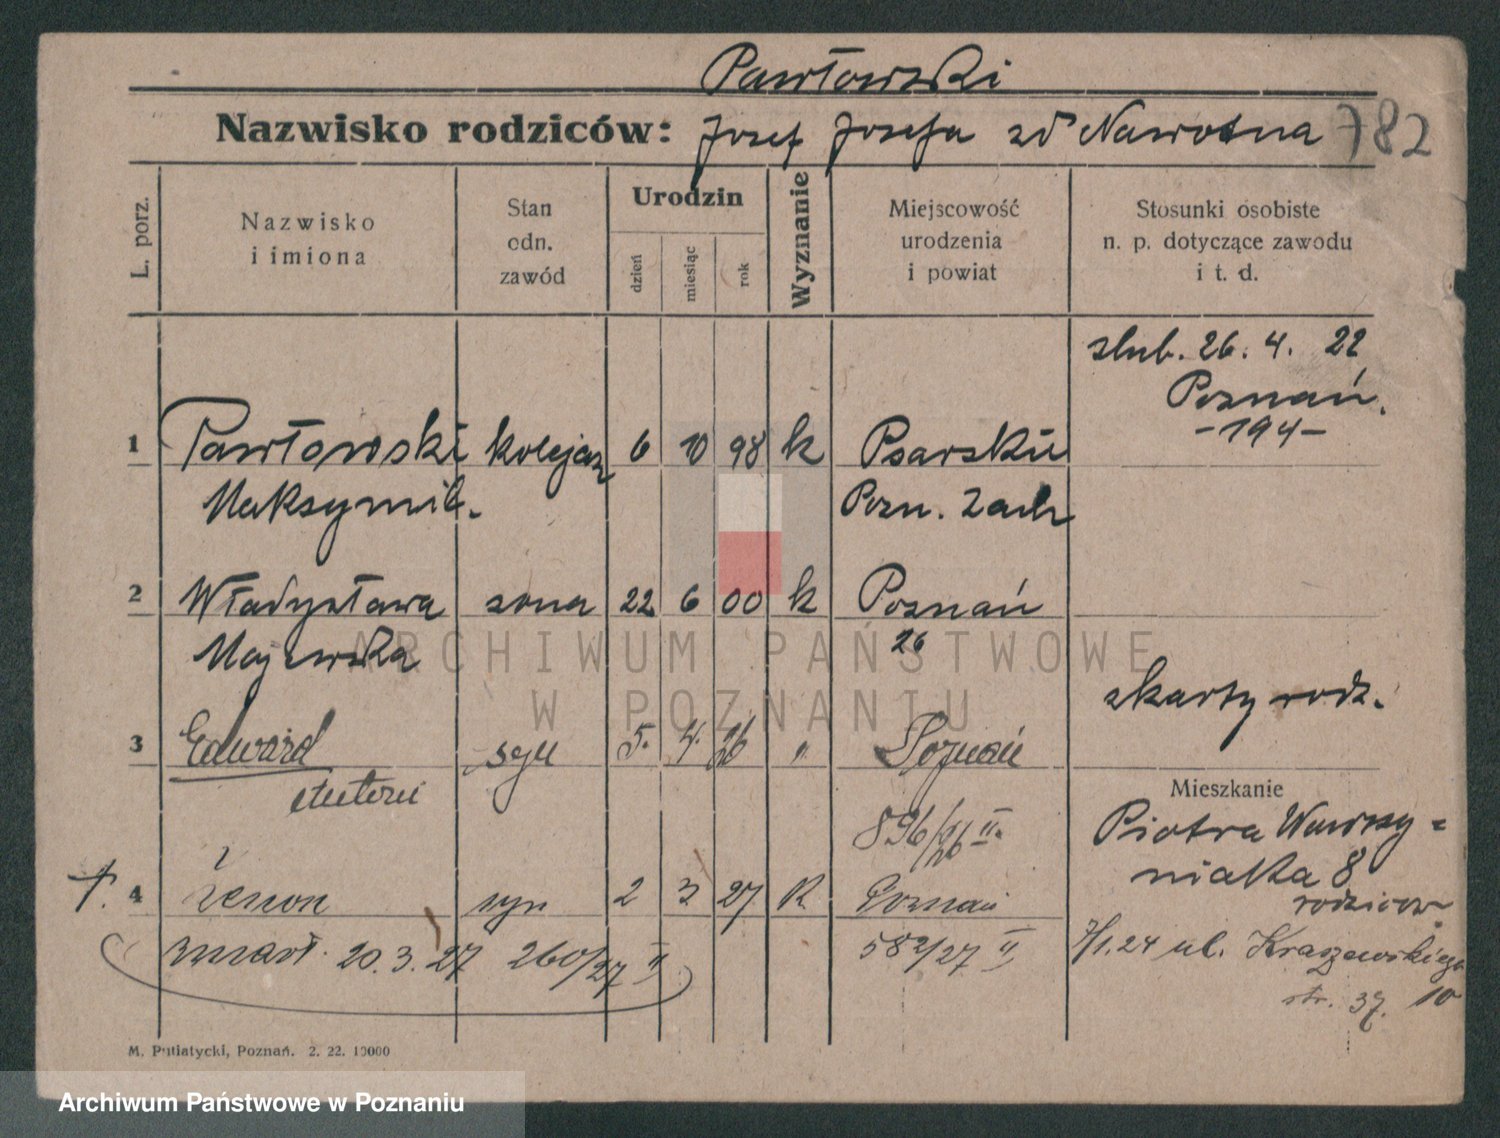 Pawłowski
Nazwisko rodziców: Josef Josefa zd Nawotna 782
L. porz.
Nazwisko
i imiona
Stan
odn.
zawód
Urodzin
dzień
miesiąc
rok
Wyznanie
Miejscowość
urodzenia
i powiat
Stosunki osobiste
n. p. dotyczące zawodu
i t. d.
slub. 26. 4. 22
Poznań.
-194-
1 Pawłowski kolejarz 6 10 98 k Psarskie
Maksymil. Pozn. Zach
2 Władysława zona 22 6 00 k Poznań
Majewska 26
z karty rodz.
3 Edward syn 5. 4. 26 " Poznań
Antoni
896/26 II.
Mieszkanie
Piotra Wawrzy=
niaka 8
rodziców
+. 4 Zenon syn 2 3 27 k Poznań
zmarł. 20.3.27 260/27 II
582/27 II
7/1.24 ul. Kraszewskiego
str. 37. 10
M. Putiatycki, Poznań. 2. 22. 10000
ARCHIWUM PAŃSTWOWE
W POZNANIU
Archiwum Państwowe w Poznaniu